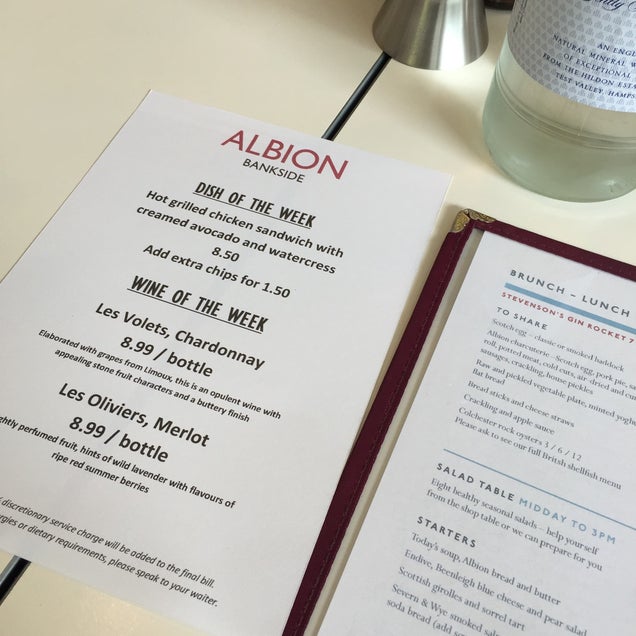 ALBION
BANKSIDE
DISH OF THE WEEK
Hot grilled chicken sandwich with
creamed avocado and watercress
8.50
Add extra chips for 1.50
WINE OF THE WEEK
Les Volets, Chardonnay
8.99 / bottle
Elaborated with grapes from Limoux, this is an opulent wine with
appealing stone fruit characters and a buttery finish
Les Oliviers, Merlot
8.99 / bottle
perfumed fruit, hints of wild lavender with flavours of
ripe red summer berries
discretionary service charge will be added to the final bill.
or dietary requirements, please speak to your waiter.
AN
NATURAL MINERAL
OF EXCEPTIONAL
FROM THE HILDON
TEST VALLEY,
BRUNCH – LUNCH
STEVENSON'S GIN ROCKET 7
TO SHARE
Scotch egg – classic or smoked haddock
Albion charcuterie – Scotch egg, pork pie,
roll, potted meat, cold cuts, air-dried and
sausages, crackling, house pickles
Raw and pickled vegetable plate, minted
flat bread
Bread sticks and cheese straws
Crackling and apple sauce
Colchester rock oysters 3 / 6 / 12
Please ask to see our full British shellfish menu
SALAD TABLE MIDDAY TO 3PM
Eight healthy seasonal salads – help yourself
from the shop table or we can prepare for you
STARTERS
Today's soup, Albion bread and butter
Endive, Beenleigh blue cheese and pear salad
Scottish girolles and sorrel tart
Severn & Wye smoked
soda bread (add